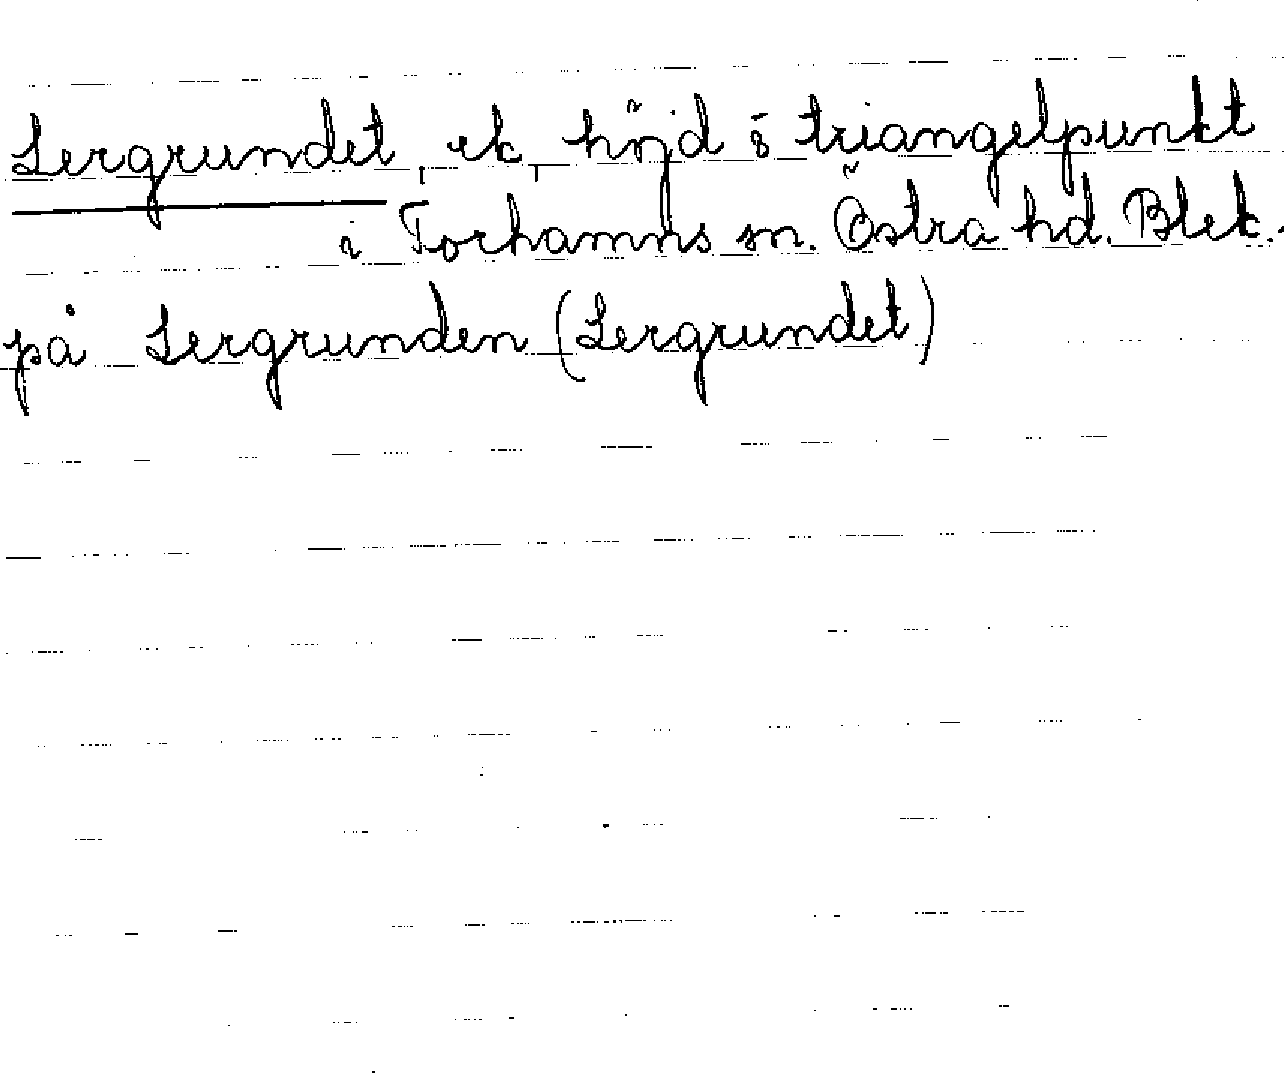 Lergrundet, ek, höjd o triangelpunkt
i Torhamns sn. Östra hd. Blek.
på Lergrunden (Lergrundet)